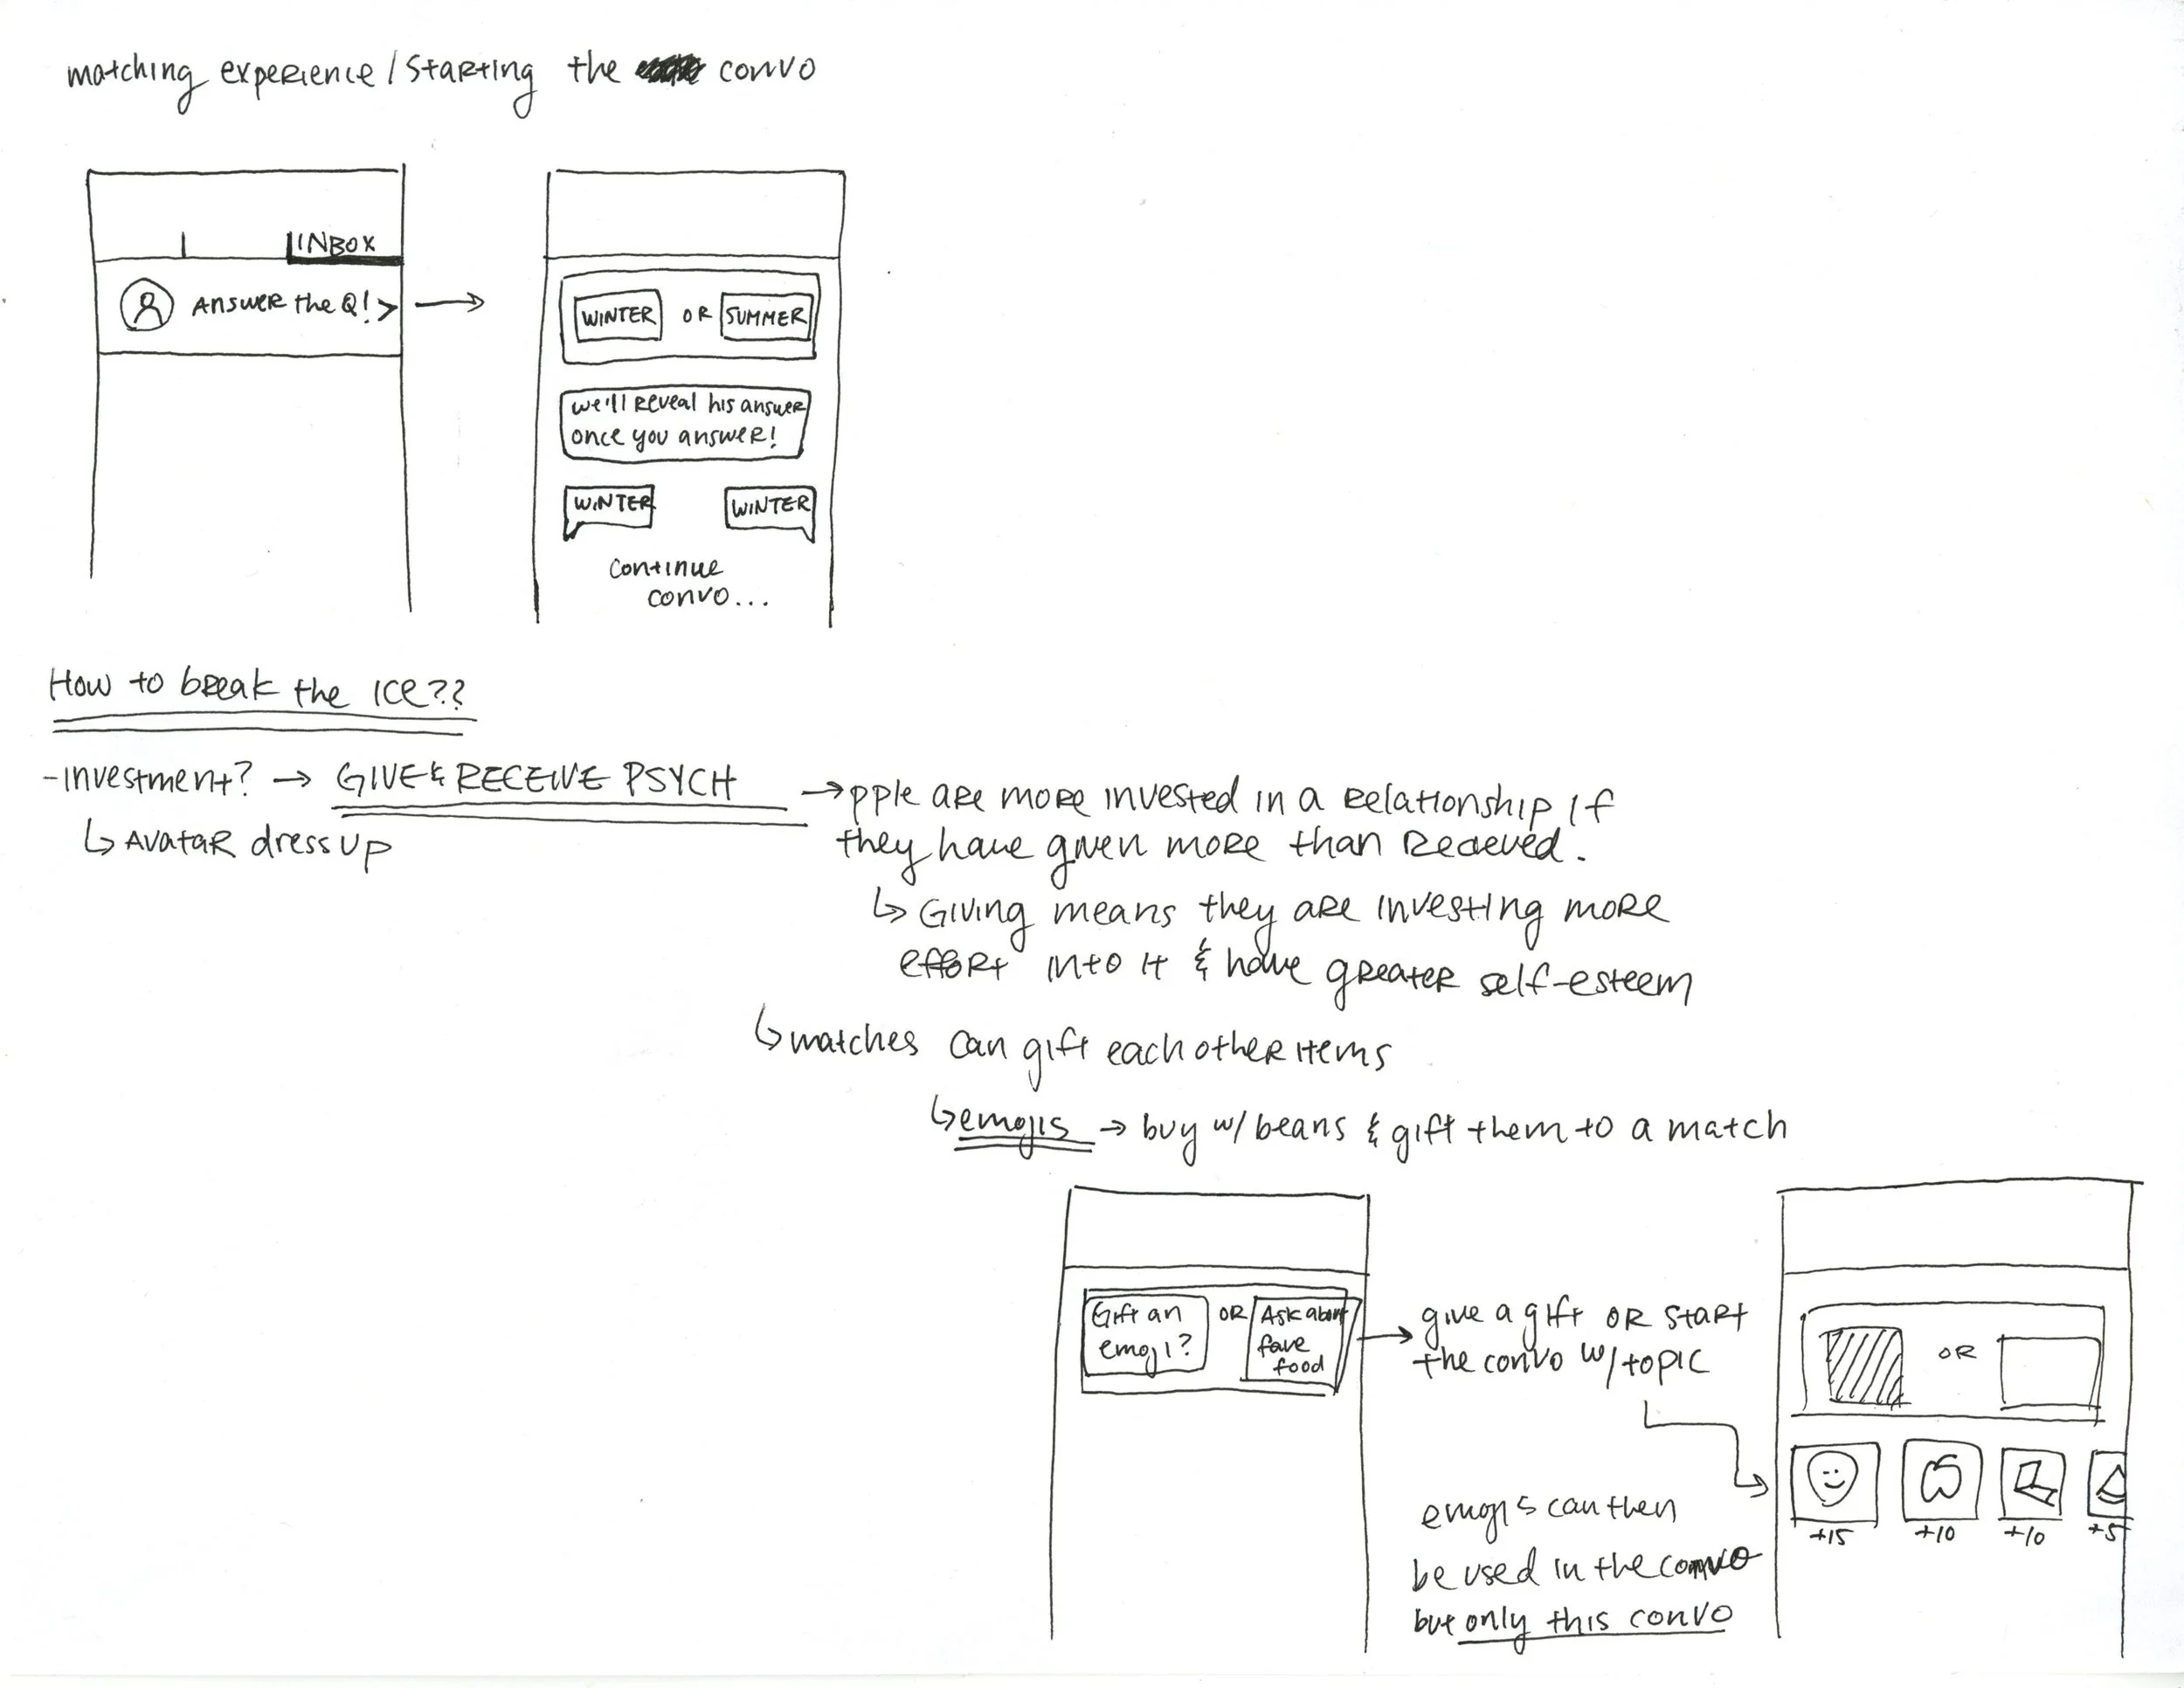 matching experience / starting the convo
INBOX
Answer the Q! >
WINTER OR SUMMER
we'll reveal his answer
once you answer!
WINTER
WINTER
continue
convo...
How to break the ice??
-investment? → GIVE & RECEIVE PSYCH
↳ Avatar dress up
→ pple are more invested in a relationship if
they have given more than recieved.
↳ Giving means they are investing more
effort into it & have greater self-esteem
↳ matches can gift each other items
↳ emojis → buy w/ beans & gift them to a match
Gift an
emoji?
OR
Ask about
fave
food
give a gift OR start
the convo w/ topic
OR
+15
+10
+10
+5
emojis can then
be used in the convo
but only this convo